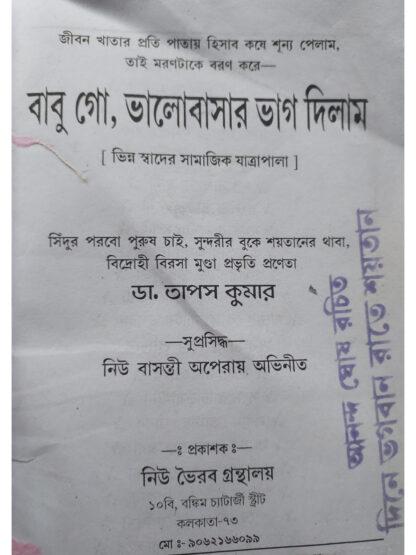 জীবন খাতার প্রতি পাতায় হিসাব কষে শূন্য পেলাম,
তাই মরণটাকে বরণ করে—
বাবু গো, ভালোবাসার ভাগ দিলাম
[ ভিন্ন স্বাদের সামাজিক যাত্রাপালা ]
সিঁদুর পরবো পুরুষ চাই, সুন্দরীর বুকে শয়তানের থাবা,
বিদ্রোহী বিরসা মুণ্ডা প্রভৃতি প্রণেতা
ডা. তাপস কুমার
—সুপ্রসিদ্ধ—
নিউ বাসন্তী অপেরায় অভিনীত
—ঃ প্রকাশক ঃ—
নিউ ভৈরব গ্রন্থালয়
১০বি, বঙ্কিম চ্যাটার্জী স্ট্রীট
কলকাতা-৭৩
মো ঃ- ৯০৬২১৬৬০৯৯
আনন্দ ঘোষ রচিত
দিনে ভগবান রাতে শয়তান